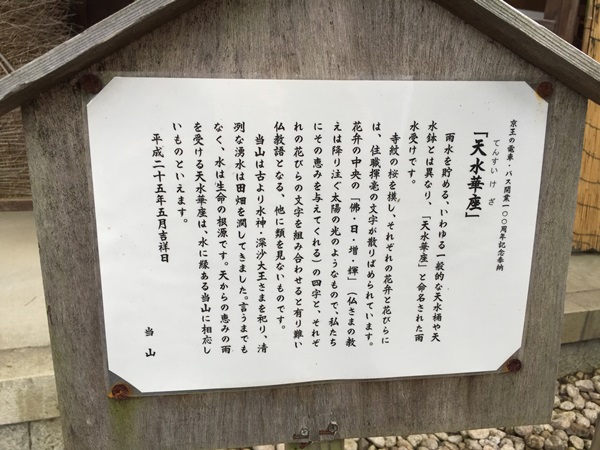 京王の電車・バス開業一〇〇周年記念奉納
「天水華座」
てんすいけざ
雨水を貯める、いわゆる一般的な天水桶や天
水鉢とは異なり、「天水華座」と命名された雨
水受けです。
寺紋の桜を模し、それぞれの花弁と花びらに
は、住職揮毫の文字が散りばめられています。
花弁の中央の「佛・日・増・輝」(仏さまの教
えは降り注ぐ太陽の光のようなもので、私たち
にその恵みを与えてくれる)の四字と、それぞ
れの花びらの文字を組み合わせると有り難い
仏教語となる、他に類を見ないものです。
当山は古より水神・深沙大王さまを祀り、清
冽な湧水は田畑を潤してきました。言うまでも
なく、水は生命の根源です。天からの恵みの雨
を受ける天水華座は、水に縁ある当山に相応し
いものといえます。
平成二十五年五月吉祥日
当山